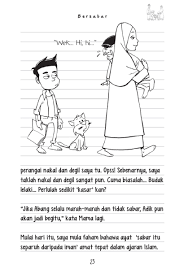 Bersabar
"Wek... Hi, hi..."
perangai nakal dan degil saya tu. Opss! Sebenarnya, saya
taklah nakal dan degil sangat pun. Cuma biasalah... Budak
lelaki... Perlulah sedikit 'kasar' kan?
"Jika Abang selalu marah-marah dan tidak sabar, Adik pun
akan jadi begitu," kata Mama lagi.
Mulai hari itu, saya mula faham bahawa ayat 'sabar itu
separuh daripada iman' amat tepat dalam ajaran Islam.
23